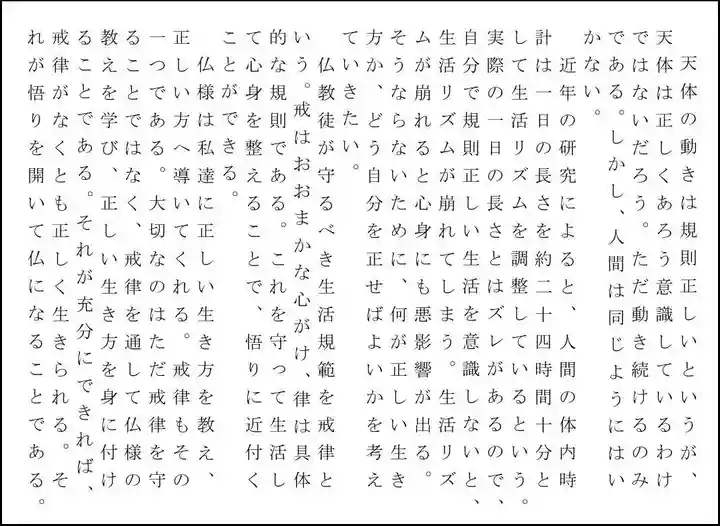 天体の動きは規則正しいというが、
天体は正しくあろう意識しているわけ
ではないだろう。ただ動き続けるのみ
である。しかし、人間は同じようにはい
かない。
　近年の研究によると、人間の体内時
計は一日の長さを約二十四時間十分と
して生活リズムを調整しているという。
実際の一日の長さとはズレがあるので、
自分で規則正しい生活を意識しないと、
生活リズムが崩れてしまう。生活リズ
ムが崩れると心身にも悪影響が出る。
そうならないために、何が正しい生き
方か、どう自分を正せばよいかを考え
ていきたい。
　仏教徒が守るべき生活規範を戒律と
いう。戒はおおまかな心がけ、律は具体
的な規則である。これを守って生活し
て心身を整えることで、悟りに近付く
ことができる。
　仏様は私達に正しい生き方を教え、
正しい方へ導いてくれる。戒律もその
一つである。大切なのはただ戒律を守
ることではなく、戒律を通して仏様の
教えを学び、正しい生き方を身に付け
ることである。それが充分にできれば、
戒律がなくとも正しく生きられる。そ
れが悟りを開いて仏になることである。